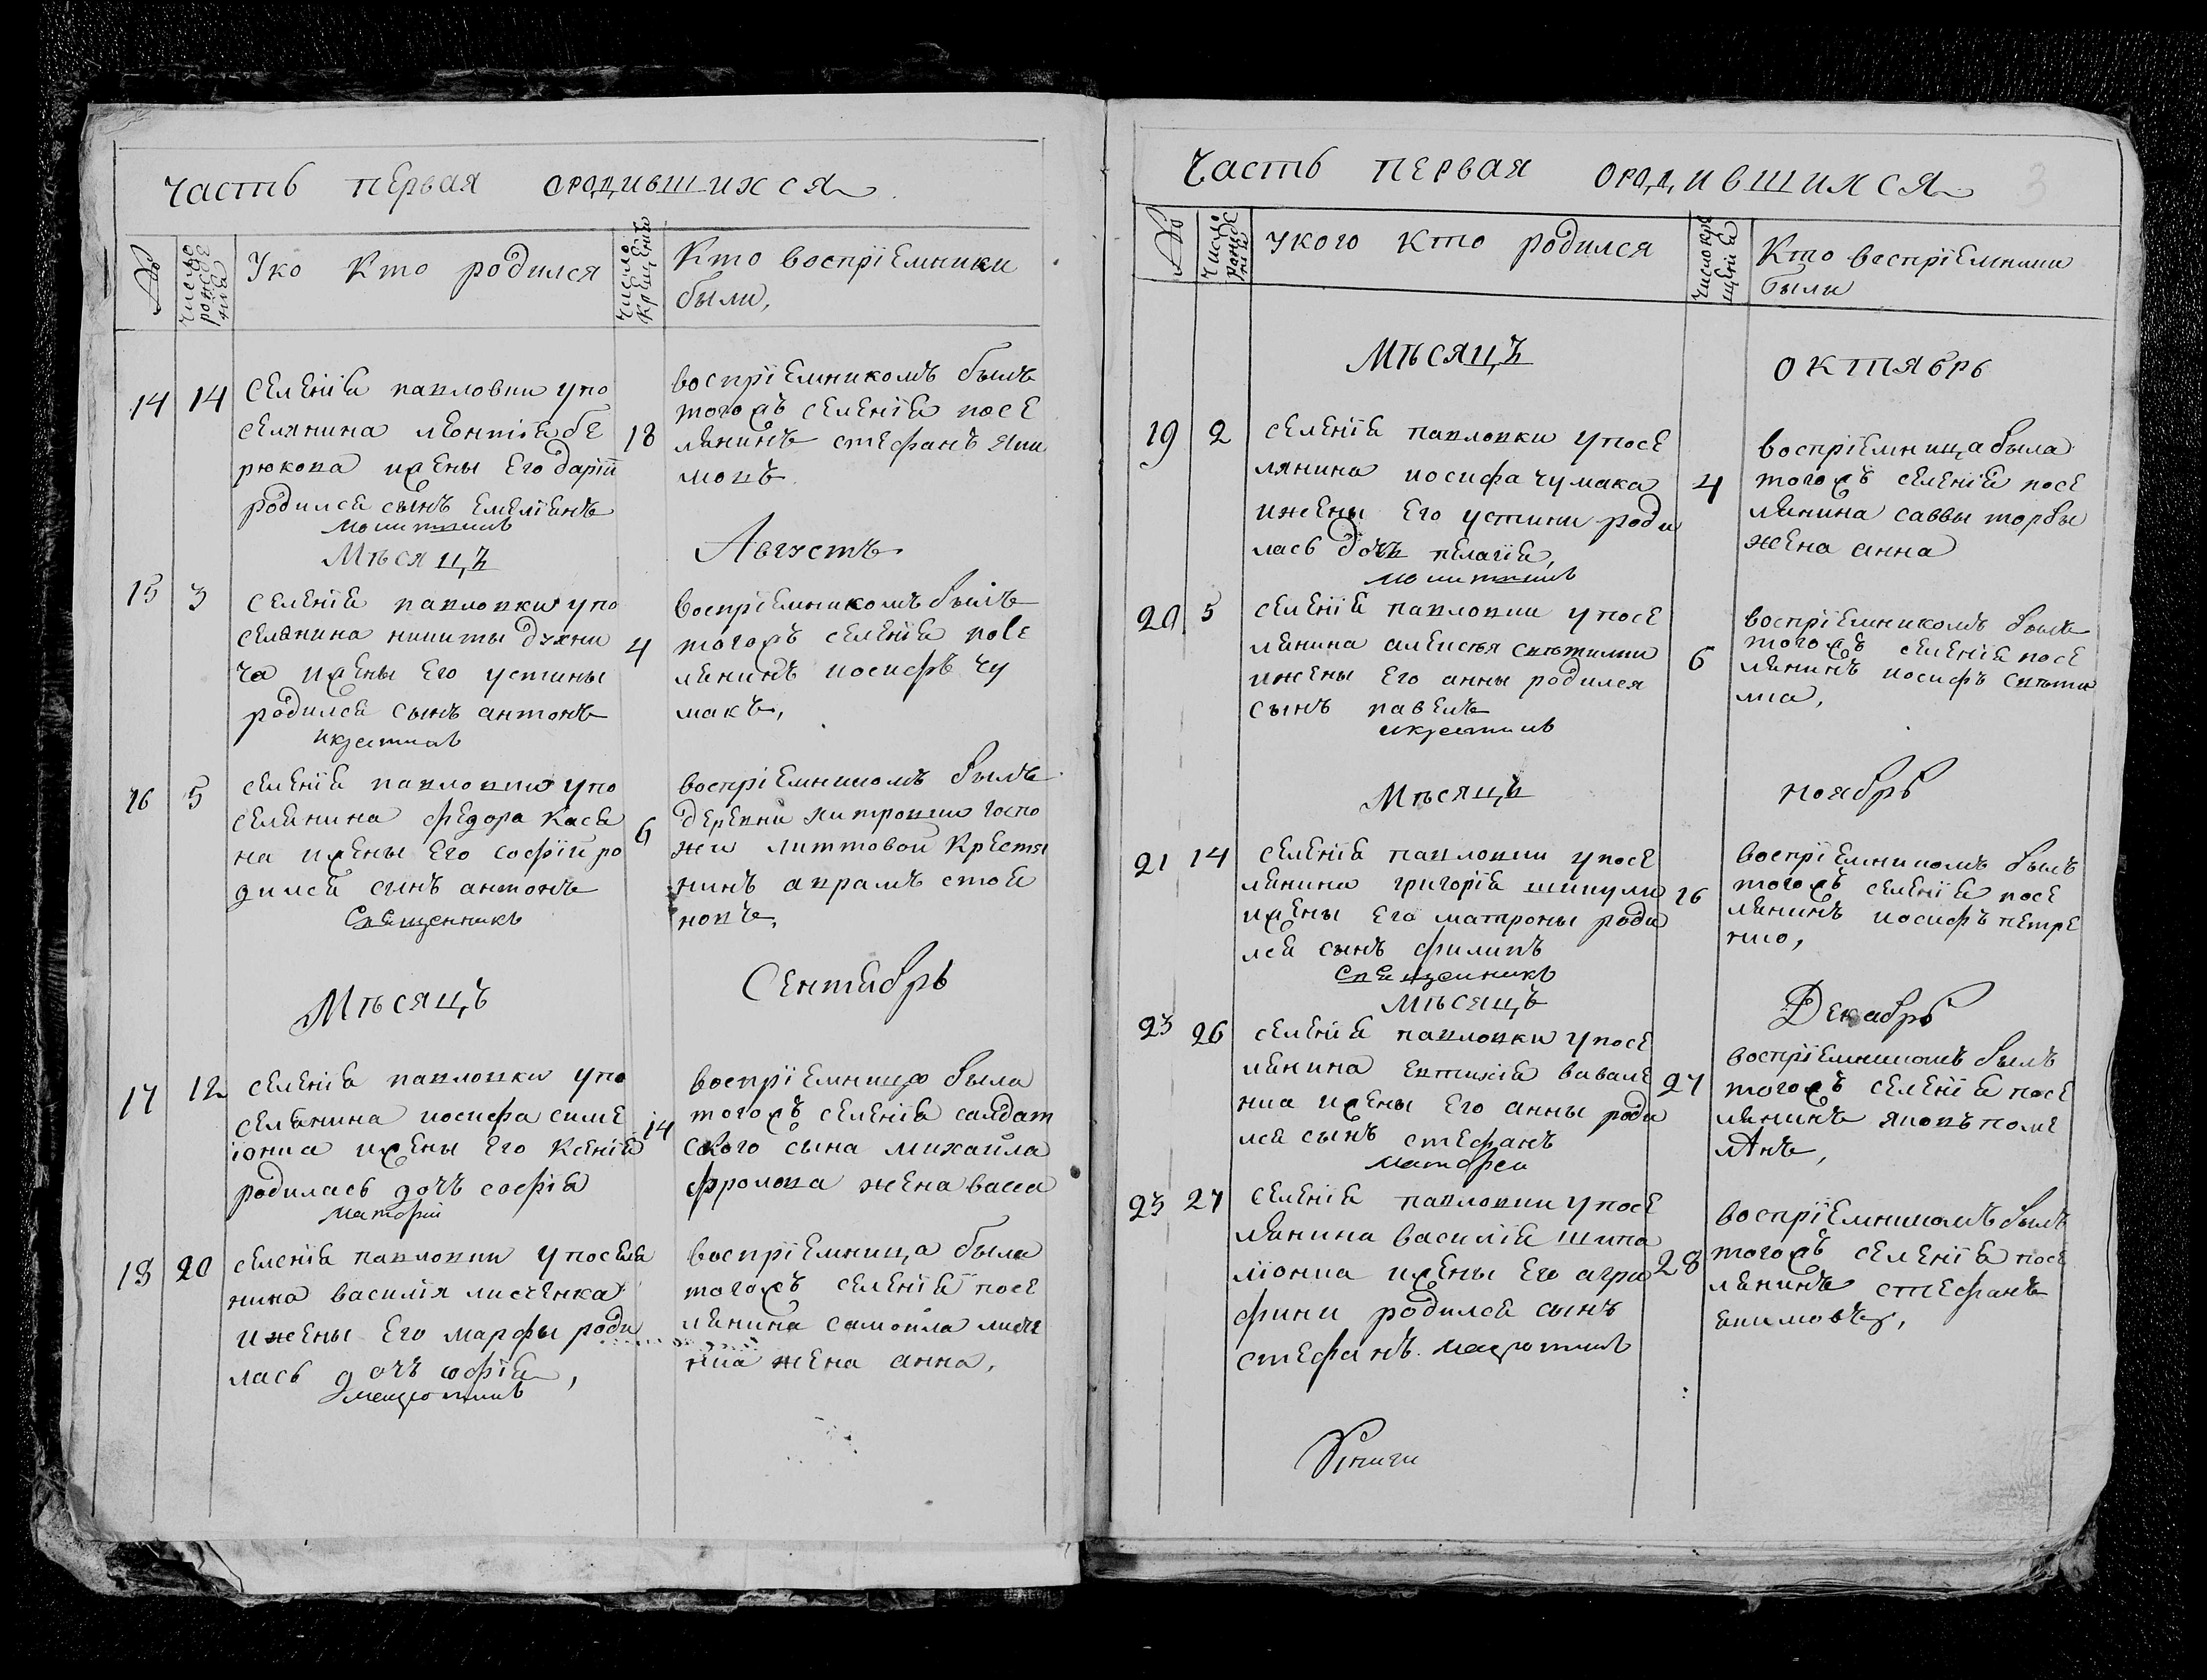 Часть первая ородившихся
№
число рождения
Уко Кто родился
число крещения
Кто воспріемники
были,
14 14
селенія павловки упо
селянина леонтія бе
рюкова ижены его дарїи
родился сынъ емеліанъ
18
воспріемникомъ былъ
тогожъ селенія посе
лянинъ стефанъ яки
мовъ.
Мѣсяцъ Августъ
15 3
селенія павловки упо
селянина никиты духни
ча ижены его устины
родился сынъ антонъ
икрестилъ
4
воспріемникомъ былъ
тогожъ селенія посе
лянинъ иосифъ чу
макъ,
16 5
селенія павловки упо
селянина федора кася
на ижены его софїи ро
дился сынъ антонъ
Священникъ
6
воспріемникомъ былъ
деревни митровки госпо
жи литтовой крестя
нинъ аврамъ стоя
новъ,
Мѣсяцъ Сентябрь
17 12
селенія павловки упо
селянина иосифа симе
іонка ижены его Ксенїи
родилась дочъ софія
14
воспріемница была
тогожъ селенія салдат
ского сына михайла
фролова жена васса
18 20
селенія павловки упоселя
нина василія лисченка
ижены его марфы роди
лась дочъ софія,
воспріемница была
тогожъ селенія посе
лянина самойла лисче
нка жена анна,
Часть первая ородившихся 3
№
число рожде
ни
укого кто родился
число кре
щенія
Кто воспріемники
были
Мѣсяцъ октябрь
19 2
селенія павловки упосе
лянина иосифа чумака
ижены его устини роди
лась дочъ пелагія,
4
воспріемница была
тогожъ селенія посе
лянина саввы торбы
жена анна
20 5
селенія павловки упосе
лянина алексея свѣтилки
ижены его анны родился
сынъ павелъ
икрестилъ
6
воспріемникомъ былъ
тогожъ селенія посе
лянинъ иосифъ свѣти
лка,
Мѣсяцъ ноябрь
21 14
селенія павловки упосе
лянина григорія шикули
ижены его матроны роди
лся сынъ филипъ
Священникъ
16
воспріемникомъ былъ
тогожъ селенія посе
лянинъ иосифъ петре
нко,
Мѣсяцъ Декабрь
23 26
селенія павловки упосе
лянина евтихія вавале
нка ижены его анны роди
лся сынъ стефанъ
27
воспріемникомъ былъ
тогожъ селенія посе
лянинъ яковъ поме
лянъ,
23 27
селенія павловки упосе
лянина василія шипа
ліонка ижены его агри
фини родился сынъ
стефанъ.
28
воспріемникомъ былъ
тогожъ селенія посе
лянинъ стефанъ
екимовъ,